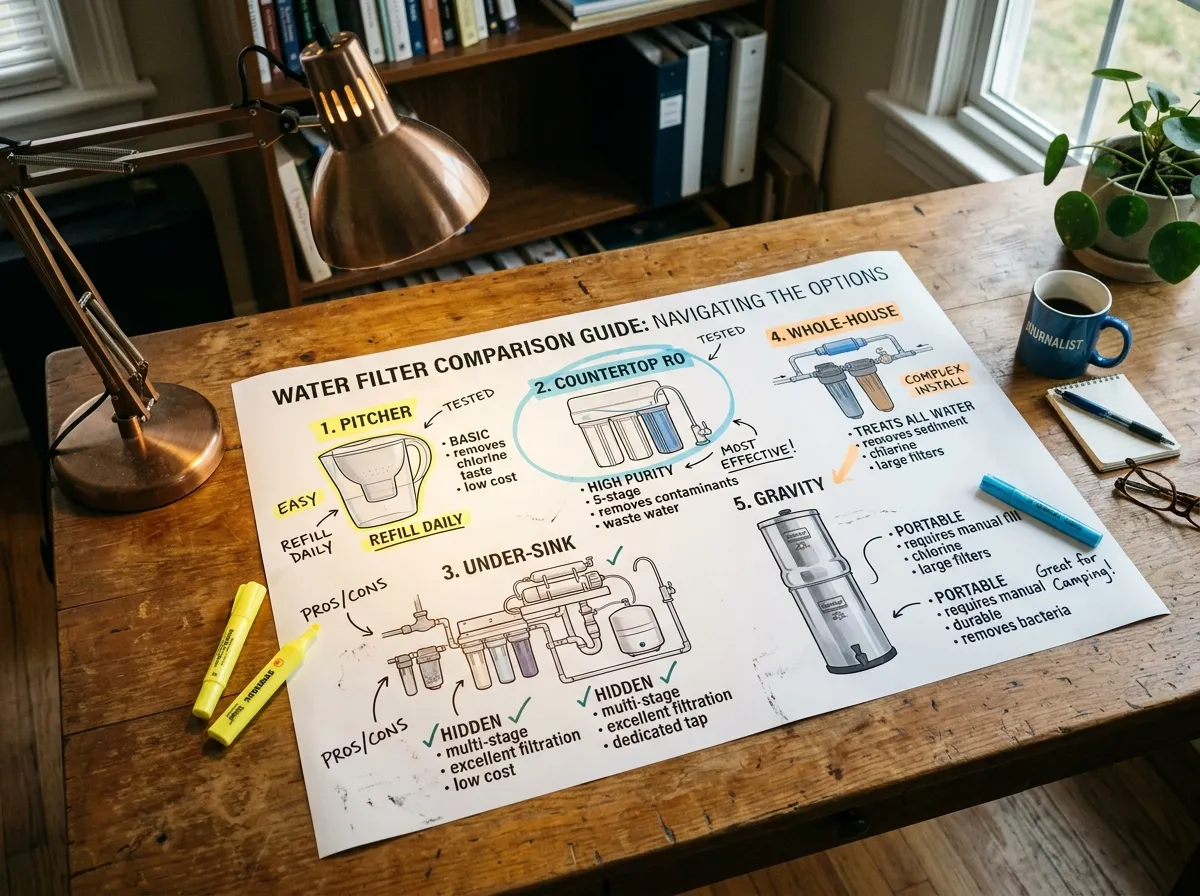 WATER FILTER COMPARISON GUIDE: NAVIGATING THE OPTIONS
1. PITCHER
TESTED
• BASIC
• removes
chlorine
taste
• low cost
EASY
REFILL
DAILY
REFILL DAILY
2. COUNTERTOP RO
TESTED
MOST
EFFECTIVE!
• HIGH PURITY
• 5-stage
• removes contaminants
• waste water
4. WHOLE-HOUSE
COMPLEX
INSTALL
• TREATS ALL WATER
• removes sediment
• chlorine
• large filters
3. UNDER-SINK
PROS/CONS
PROS/CONS
HIDDEN
• multi-stage
• excellent filtration
• low cost
HIDDEN
• multi-stage
• excellent filtration
• dedicated tap
5. GRAVITY
• PORTABLE
• requires manual fill
• chlorine
• large filters
• PORTABLE
• requires manual
• durable
• removes bacteria
Great for
Camping!
JOURNALIST